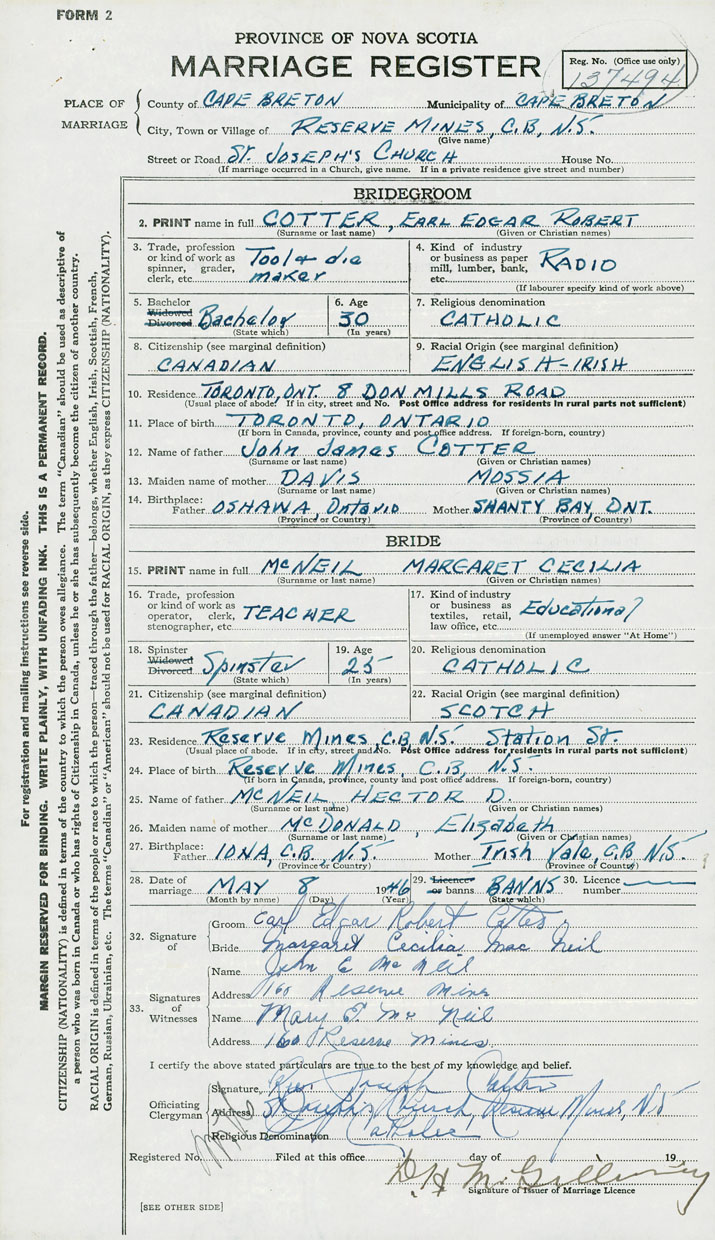 FORM 2
PROVINCE OF NOVA SCOTIA
MARRIAGE REGISTER
Reg. No. (Office use only)
137494
PLACE OF MARRIAGE
County of CAPE BRETON Municipality of CAPE BRETON
City, Town or Village of RESERVE MINES, C.B, N.S.
(Give name)
Street or Road ST. JOSEPH'S CHURCH House No.
(If marriage occurred in a Church, give name. If in a private residence give street and number)
BRIDEGROOM
2. PRINT name in full COTTER, EARL EDGAR ROBERT
(Surname or last name) (Given or Christian names)
3. Trade, profession or kind of work as spinner, grader, clerk, etc. Tool & die maker
4. Kind of industry or business as paper mill, lumber, bank, etc. RADIO
(If labourer specify kind of work above)
5. Bachelor Widowed Divorced Bachelor
(State which)
6. Age 30
(In years)
7. Religious denomination
CATHOLIC
8. Citizenship (see marginal definition)
CANADIAN
9. Racial Origin (see marginal definition)
ENGLISH-IRISH
10. Residence TORONTO, ONT. 8 DON MILLS ROAD
(Usual place of abode. If in city, street and No. Post Office address for residents in rural parts not sufficient)
11. Place of birth TORONTO, ONTARIO
(If born in Canada, province, county and post office address. If foreign-born, country)
12. Name of father John James COTTER
(Surname or last name) (Given or Christian names)
13. Maiden name of mother DAVIS MOSSIA
(Surname or last name) (Given or Christian names)
14. Birthplace: Father OSHAWA, Ontario Mother SHANTY BAY, ONT.
(Province or Country) (Province or Country)
BRIDE
15. PRINT name in full McNEIL MARGARET CECILIA
(Surname or last name) (Given or Christian names)
16. Trade, profession or kind of work as operator, clerk, stenographer, etc. TEACHER
17. Kind of industry or business as textiles, retail, law office, etc. Educational
(If unemployed answer "At Home")
18. Spinster Widowed Divorced Spinster
(State which)
19. Age 25
(In years)
20. Religious denomination
CATHOLIC
21. Citizenship (see marginal definition)
CANADIAN
22. Racial Origin (see marginal definition)
SCOTCH
23. Residence Reserve Mines, C.B, N.S. Station St.
(Usual place of abode. If in city, street and No. Post Office address for residents in rural parts not sufficient)
24. Place of birth Reserve Mines, C.B, N.S.
(If born in Canada, province, county and post office address. If foreign-born, country)
25. Name of father McNEIL HECTOR D.
(Surname or last name) (Given or Christian names)
26. Maiden name of mother McDONALD, Elizabeth
(Surname or last name) (Given or Christian names)
27. Birthplace: Father IONA, C.B, N.S. Mother Irish Vale, C.B N.S.
(Province or Country) (Province or Country)
28. Date of marriage MAY 8 1946
(Month by name) (Day) (Year)
29. Licence or banns BANNS
(State which)
30. Licence number
32. Signature of
Groom Earl Edgar Robert Cotter
Bride Margaret Cecilia Mac Neil
33. Signatures of Witnesses
Name John E Mc Neil
Address 160 Reserve Mines
Name Mary E. Mc Neil
Address 160 Reserve Mines
I certify the above stated particulars are true to the best of my knowledge and belief.
Officiating Clergyman
Signature Rev. Joseph
Address St Joseph's Church, Reserve Mines, N.S
Religious Denomination Catholic
Registered No. Filed at this office day of 19
D. H. McGillivray
Signature of Issuer of Marriage Licence
[SEE OTHER SIDE]
For registration and mailing instructions see reverse side.
MARGIN RESERVED FOR BINDING. WRITE PLAINLY, WITH UNFADING INK. THIS IS A PERMANENT RECORD.
CITIZENSHIP (NATIONALITY) is defined in terms of the country to which the person owes allegiance. The term "Canadian" should be used as descriptive of
a person who was born in Canada or who has rights of Citizenship in Canada, unless he or she has subsequently become the citizen of another country.
RACIAL ORIGIN is defined in terms of the people or race to which the person—traced through the father—belongs, whether English, Irish, Scottish, French,
German, Russian, Ukrainian, etc. The terms "Canadian" or "American" should not be used for RACIAL ORIGIN, as they express CITIZENSHIP (NATIONALITY).